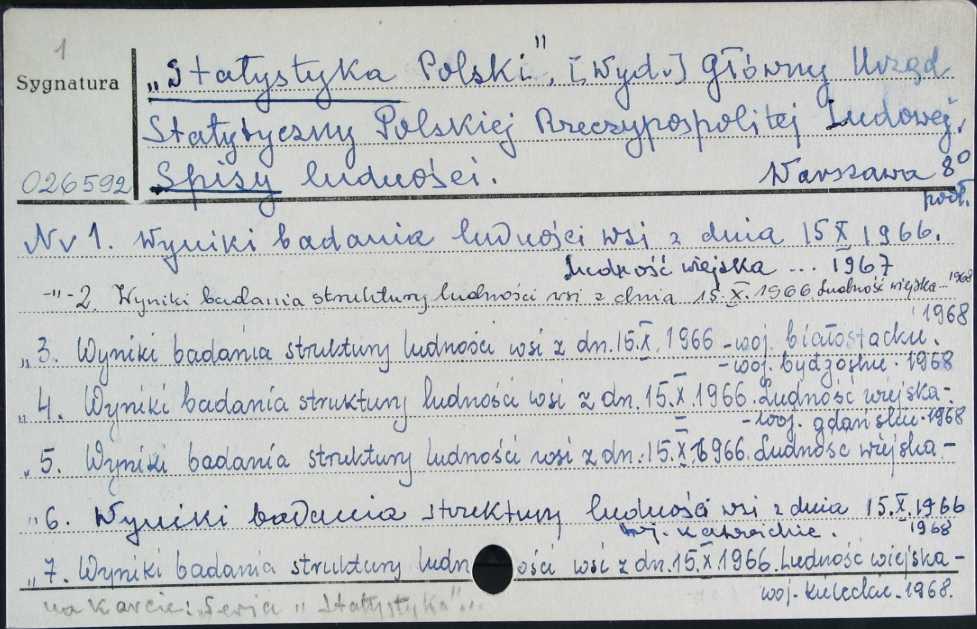 1
Sygnatura
026592
„Statystyka Polski", [Wyd.] Główny Urząd
Statystyczny Polskiej Rzeczypospolitej Ludowej.
Spisy ludności. Warszawa 8°
podł.
Nr 1. Wyniki badania ludności wsi z dnia 15 X 1966.
Ludność wiejska ... 1967
-"- 2. Wyniki badania struktury ludności wsi z dnia 15.X.1966 Ludność wiejska - 1968
1968
„ 3. Wyniki badania struktury ludności wsi z dn. 15.X. 1966 - woj. białostockie.
- woj. bydgoskie. 1968
„ 4. Wyniki badania struktury ludności wsi z dn. 15.X 1966. Ludność wiejska -
- woj. gdańskie. 1968
„ 5. Wyniki badania struktury ludności wsi z dn. 15.X 1966. Ludność wiejska -
„ 6. Wyniki badania struktury ludności wsi z dnia 15.X.1966
woj. katowickie. 1968
„ 7. Wyniki badania struktury ludn ości wsi z dn. 15.X 1966. Ludność wiejska -
woj. kieleckie. 1968.
na karcie: Seria „Statystyka"...